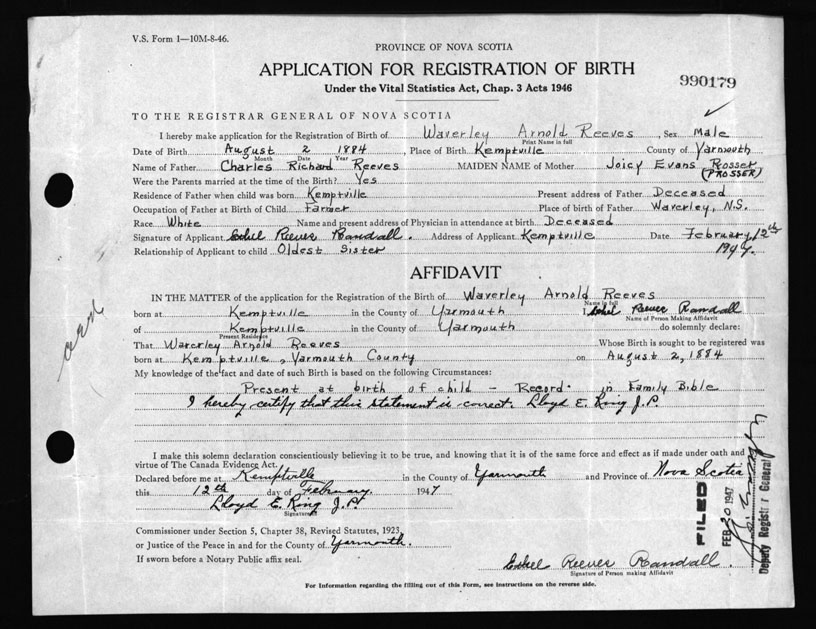 V.S. Form 1—10M-8-46.
PROVINCE OF NOVA SCOTIA
APPLICATION FOR REGISTRATION OF BIRTH
990179
Under the Vital Statistics Act, Chap. 3 Acts 1946
TO THE REGISTRAR GENERAL OF NOVA SCOTIA
I hereby make application for the Registration of Birth of Waverley Arnold Reeves, Sex Male
Print Name in full
Date of Birth August 2 1884, Place of Birth Kemptville County of Yarmouth
Month Date Year
Name of Father Charles Richard Reeves MAIDEN NAME of Mother Joicy Evans Rosser
(PROSSER)
Were the Parents married at the time of the Birth? Yes
Residence of Father when child was born Kemptville Present address of Father Deceased
Occupation of Father at Birth of Child Farmer Place of birth of Father Waverley, N.S.
Race White Name and present address of Physician in attendance at birth Deceased
Signature of Applicant Ethel Reeves Randall. Address of Applicant Kemptville Date February, 12th
1947.
Relationship of Applicant to child Oldest Sister
AFFIDAVIT
IN THE MATTER of the application for the Registration of the Birth of Waverley Arnold Reeves
Name in full
born at Kemptville in the County of Yarmouth I, Ethel Reeves Randall
Name of Person Making Affidavit
of Kemptville in the County of Yarmouth do solemnly declare:
Present Residence
That Waverley Arnold Reeves Whose Birth is sought to be registered was
born at Kemptville, Yarmouth County on August 2, 1884
My knowledge of the fact and date of such Birth is based on the following Circumstances:
Present at birth of child - Record in Family Bible
I hereby certify that this statement is correct. Lloyd E. Ring J.P.
I make this solemn declaration conscientiously believing it to be true, and knowing that it is of the same force and effect as if made under oath and by
virtue of The Canada Evidence Act.
Declared before me at Kemptville in the County of Yarmouth and Province of Nova Scotia
this 12th day of February. 1947
Lloyd E. Ring J.P.
Signature
Commissioner under Section 5, Chapter 38, Revised Statutes, 1923,
or Justice of the Peace in and for the County of Yarmouth.
If sworn before a Notary Public affix seal.
Ethel Reeves Randall.
Signature of Person making Affidavit
FILED
FEB 20 1947
Deputy Registrar General
For Information regarding the filling out of this Form, see instructions on the reverse side.